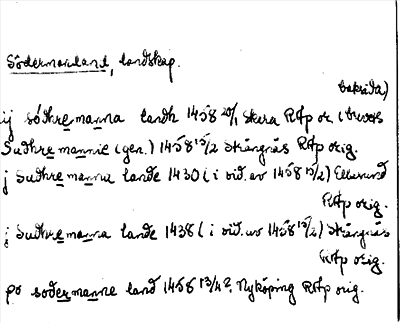 Södermanland, landskap.
baksida)
ij södhremanna landh 1458 20/1 Skara RAp or. (brevets
Sudhremannie (gen.) 1458 15/2 Strängnäs RAp orig.
j Sudhremanna lande 1430 (i vid. av 1458 15/2) Ellerund
RAp orig.
j Sudhremanna lande 1438 (i vid. av 1458 15/2) Strängnäs
RAp orig.
po sodermanne land 1458 13/4 Nyköping RAp orig.